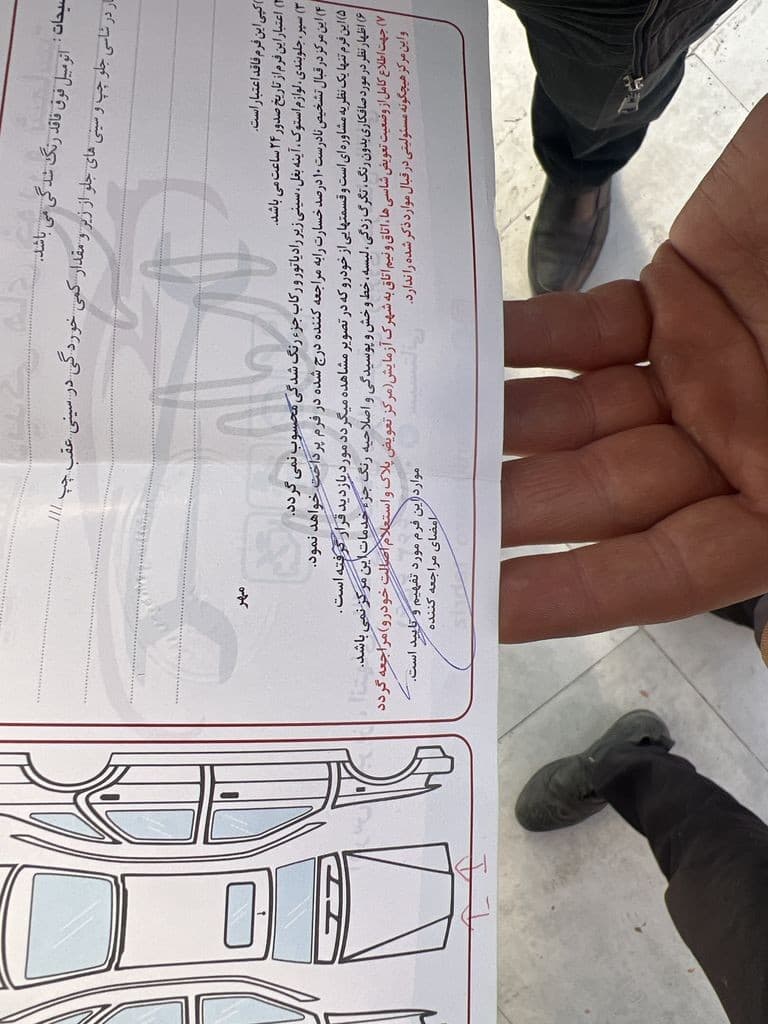 توضیحات : اتومبیل فوق فاقد رنگ شدگی می باشد.
در شاسی جلو چپ و سینی های جلو از زیر و مقدار کمی خوردگی در سینی عقب چپ ///
۱) کپی این فرم فاقد اعتبار است.
۲) اعتبار این فرم از تاریخ صدور ۲۴ ساعت می باشد.
۳) سپر، جلوبندی، لوازم استوک، آینه بغل، سینی زیر رادیاتور و رکاب جزء رنگ شدگی محسوب نمی گردد.
۴) این مرکز در قبال تشخیص نادرست ۱۰ درصد خسارت را به مراجعه کننده درج شده در فرم پرداخت خواهد نمود.
۵) این فرم تنها یک نظریه مشاوره ای است و قسمتهایی از خودرو که در تصویر مشاهده میگردد مورد بازدید قرار گرفته است.
۶) اظهار نظر در مورد صافکاری بدون رنگ، تگرگ زدگی، لیسه، خط و خش و پوسیدگی و اصلاحیه رنگ جزء خدمات این مرکز نمی باشد.
۷) جهت اطلاع کامل از وضعیت تعویض شاسی ها، اتاق و نیم اتاق به شهرک آزمایش (مرکز تعویض پلاک و استعلام اصالت خودرو) مراجعه گردد
و این مرکز هیچگونه مسئولیتی در قبال موارد ذکر شده را ندارد.
موارد این فرم مورد تفهیم و تایید است.
امضای مراجعه کننده
مهر